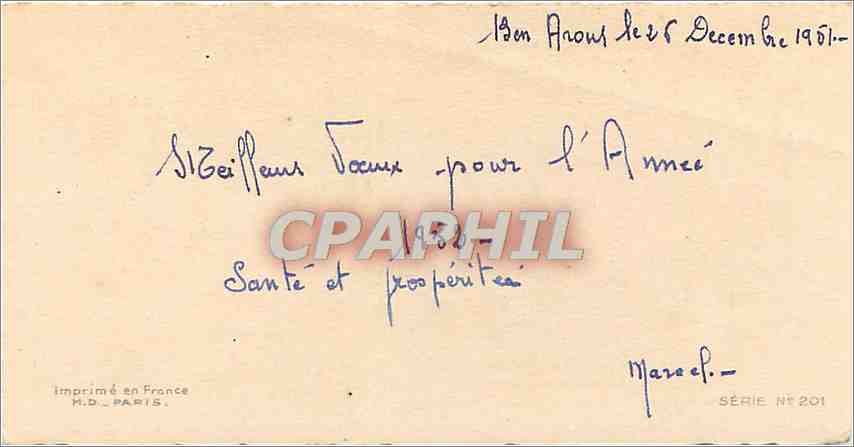 Ben Arous le 26 Decembre 1951.-
Meilleurs Voeux pour l'Anneé
1952-
CPAPHIL
Santé et prospéritée
Marcel.-
Imprimé en France
M.D. - PARIS.
SÉRIE No 201